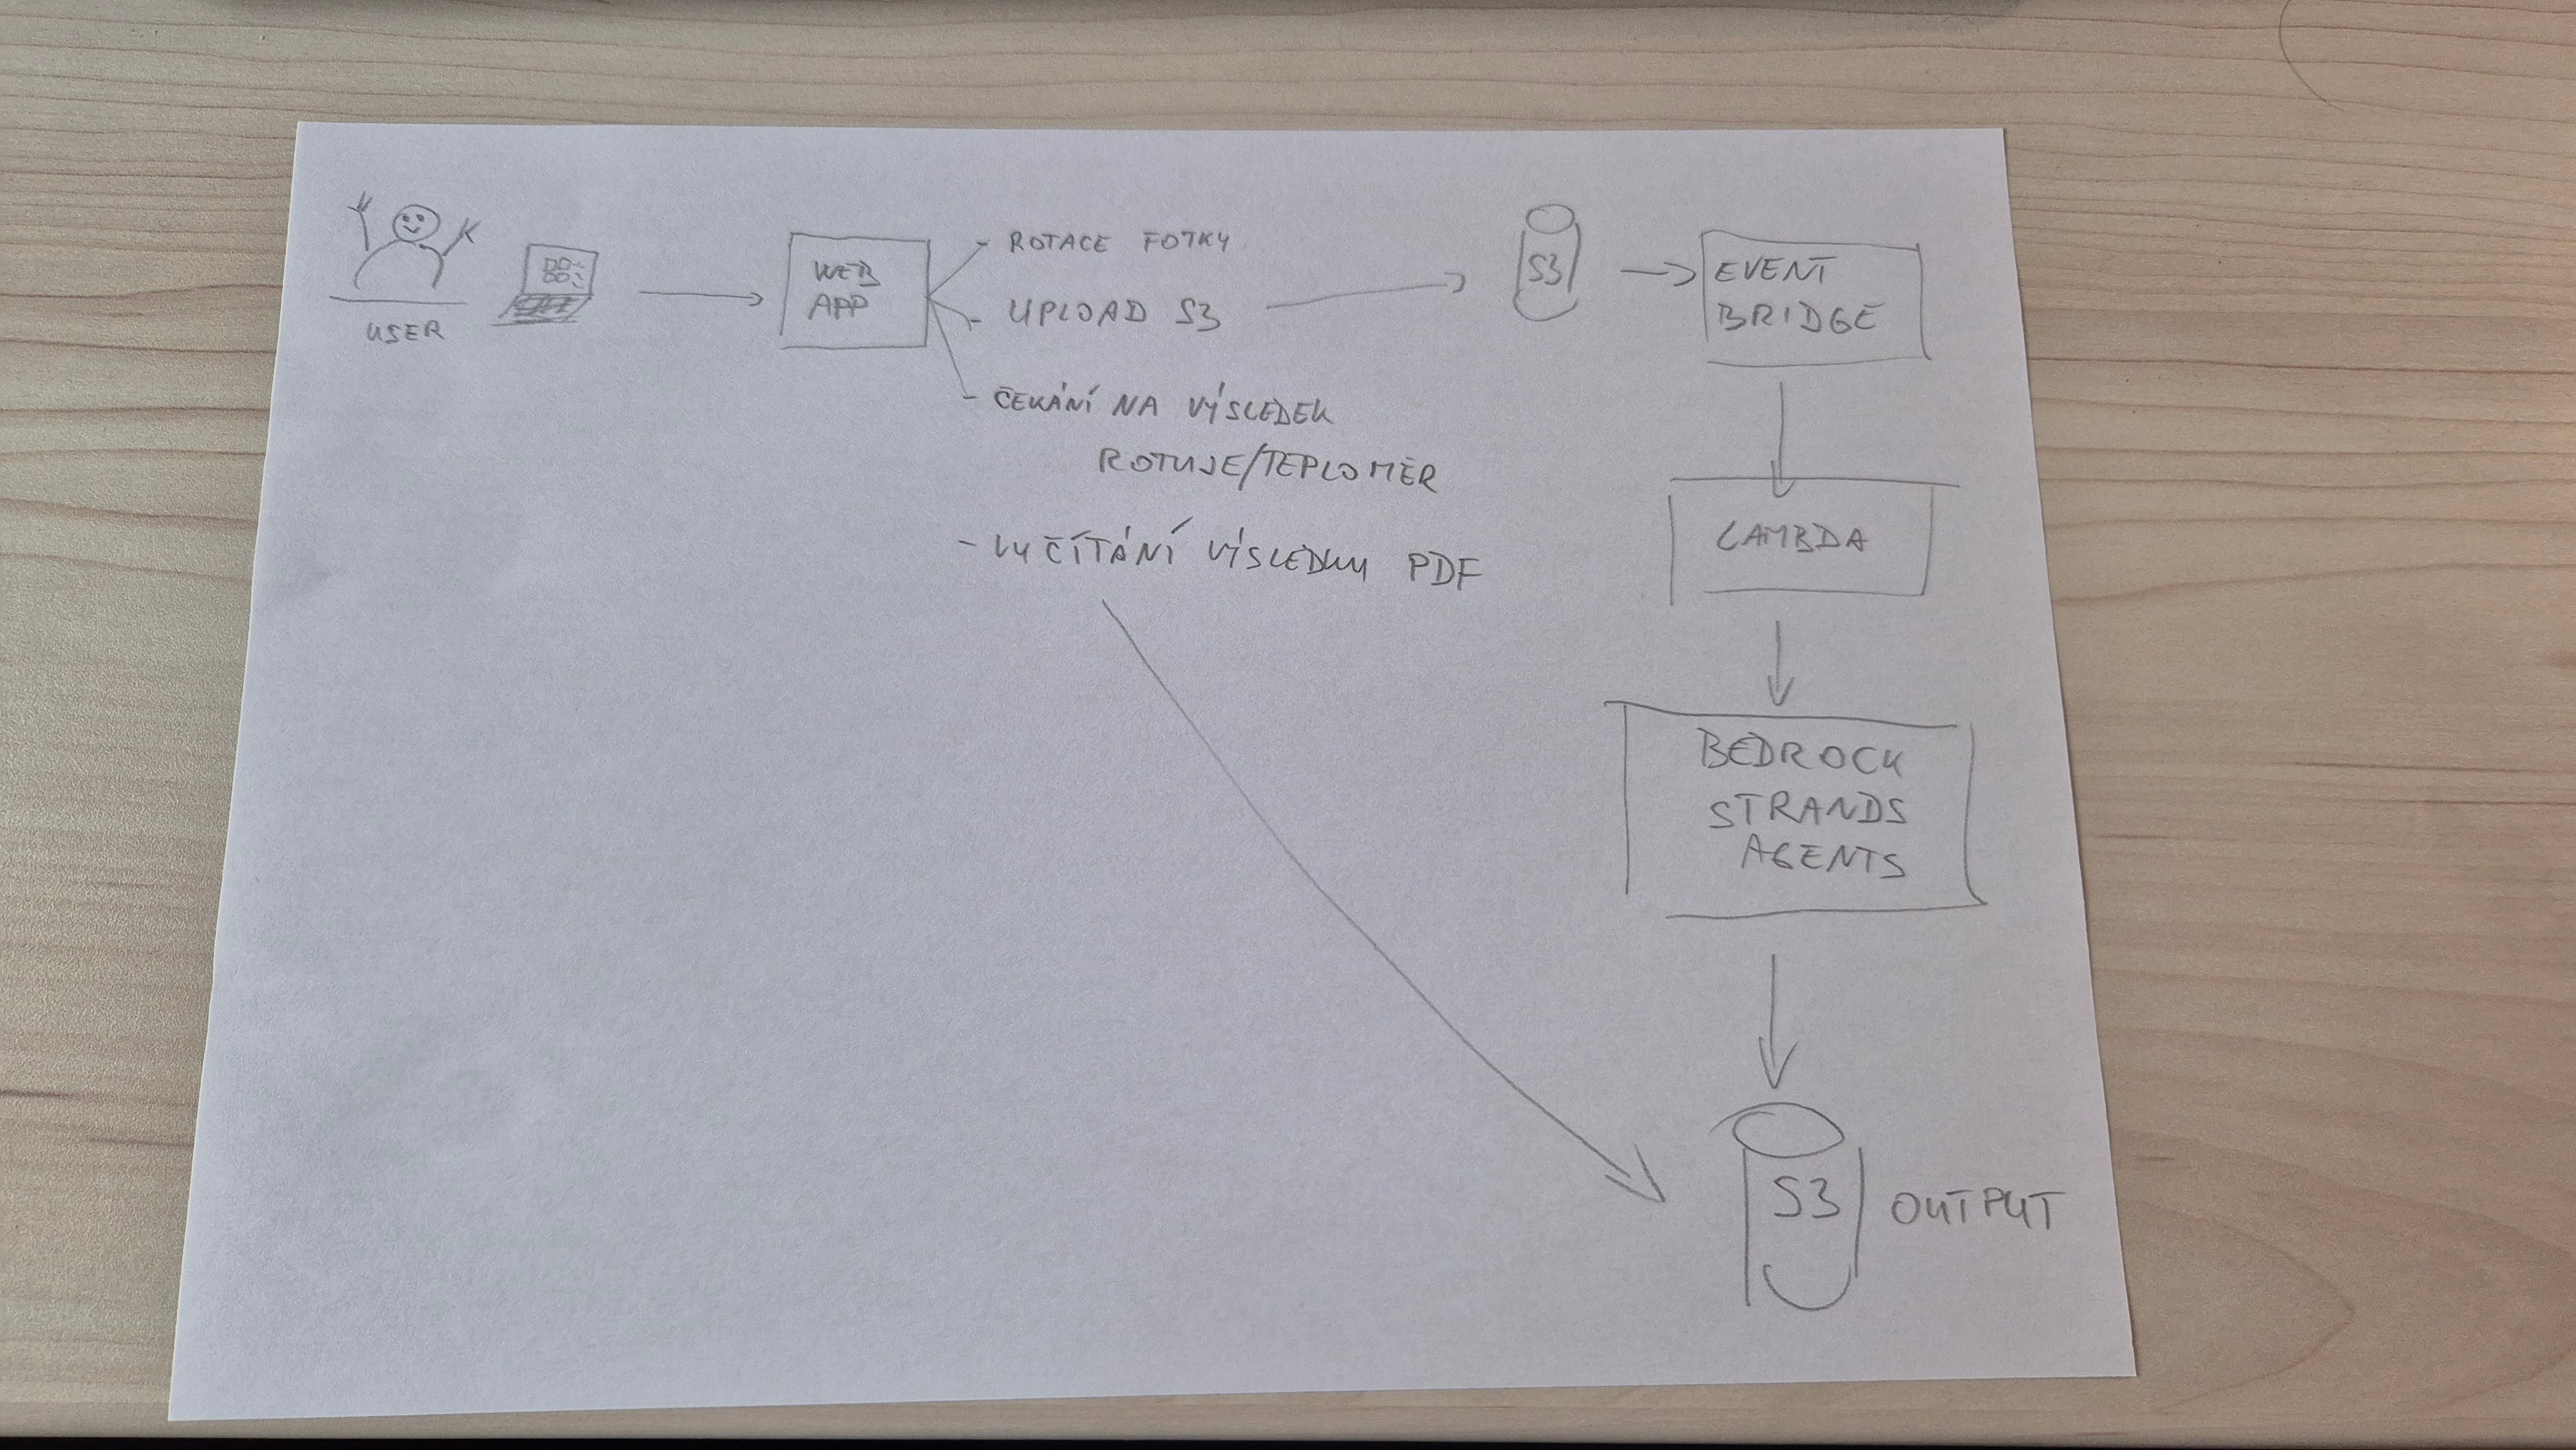 USER
WEB
APP
- ROTACE FOTKY
- UPLOAD S3
- ČEKÁNÍ NA VÝSLEDEK
ROTUJE/TEPLOMĚR
- VYČÍTÁNÍ VÝSLEDKU PDF
S3
EVENT
BRIDGE
LAMBDA
BEDROCK
STRANDS
AGENTS
S3
OUTPUT